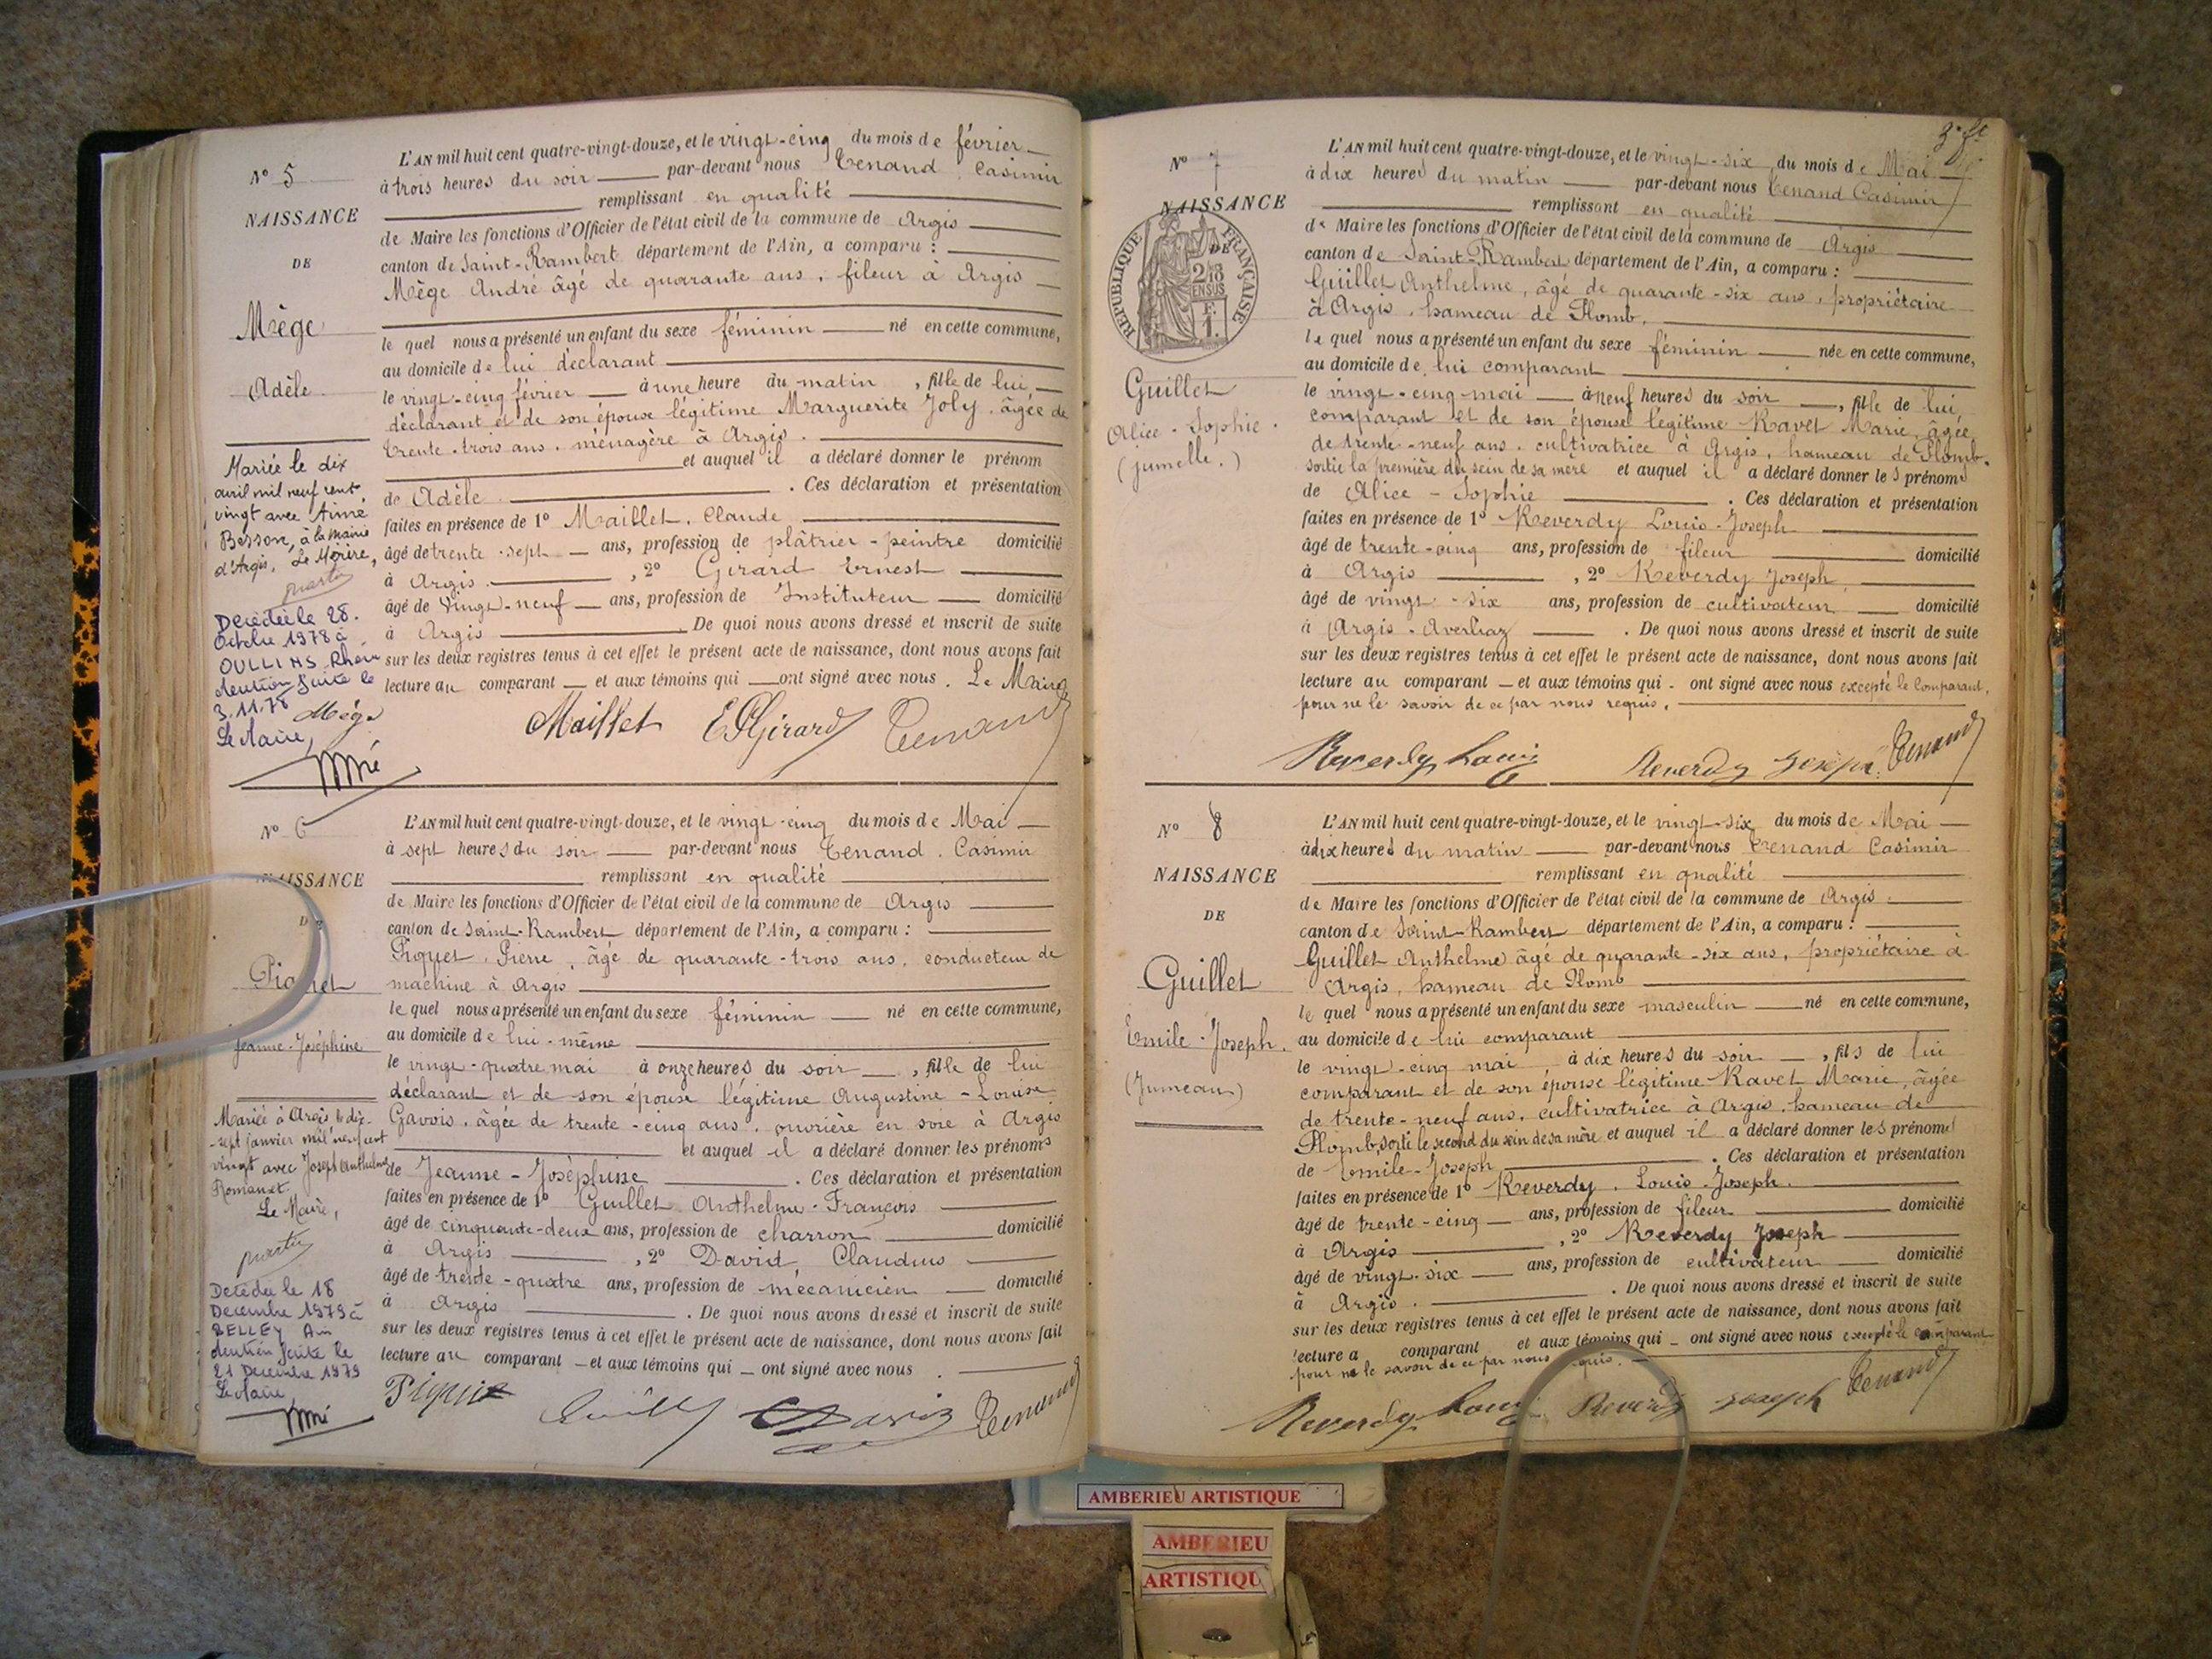 Nº 5
NAISSANCE
DE
Mège
Adèle
Mariée le dix
avril mil neuf cent
vingt avec Aimé
Besson, à la mairie
d'Argis. Le Maire,
Décédée le 28.
Octobre 1978 à
OULLINS Rhône
Mention faite le
3.11.78
Le Maire,
L'AN mil huit cent quatre-vingt-douze, et le vingt-cinq du mois de février
à trois heures du soir par-devant nous Tenand, Casimir
remplissant en qualité
de Maire les fonctions d'Officier de l'état civil de la commune de Argis
canton de Saint-Rambert département de l'Ain, a comparu :
Mège André âgé de quarante ans, fileur à Argis
le quel nous a présenté un enfant du sexe féminin né en cette commune,
au domicile de lui déclarant
le vingt-cinq février à une heure du matin, fille de lui
déclarant et de son épouse légitime Marguerite Joly, âgée de
trente-trois ans, ménagère à Argis.
et auquel il a déclaré donner le prénom
de Adèle. Ces déclaration et présentation
faites en présence de 1º Maillet, Claude
âgé de trente-sept ans, profession de plâtrier-peintre domicilié
à Argis, 2º Girard Ernest
âgé de vingt-neuf ans, profession de Instituteur domicilié
à Argis De quoi nous avons dressé et inscrit de suite
sur les deux registres tenus à cet effet le présent acte de naissance, dont nous avons fait
lecture au comparant et aux témoins qui ont signé avec nous. Le Maire
Mège Maillet E Girard Tenand
Nº 6
NAISSANCE
DE
Piquet
Jeanne-Joséphine
Mariée à Argis le dix-
-sept janvier mil neuf cent
vingt avec Joseph Anthelme
Romanet.
Le Maire,
Décédée le 18
Décembre 1979 à
BELLEY Ain
Mention faite le
21 Décembre 1979
Le Maire
L'AN mil huit cent quatre-vingt-douze, et le vingt-cinq du mois de Mai
à sept heures du soir par-devant nous Tenand, Casimir
remplissant en qualité
de Maire les fonctions d'Officier de l'état civil de la commune de Argis
canton de Saint-Rambert département de l'Ain, a comparu :
Piquet, Pierre, âgé de quarante-trois ans, conducteur de
machine à Argis
le quel nous a présenté un enfant du sexe féminin né en cette commune,
au domicile de lui-même
le vingt-quatre mai à onze heures du soir, fille de lui
déclarant et de son épouse légitime Augustine-Louise
Gavois, âgée de trente-cinq ans, ouvrière en soie à Argis
et auquel il a déclaré donner les prénoms
de Jeanne-Joséphine. Ces déclaration et présentation
faites en présence de 1º Guillet Anthelme-François
âgé de cinquante-deux ans, profession de charron domicilié
à Argis, 2º David, Claudius
âgé de trente-quatre ans, profession de mécanicien domicilié
à Argis. De quoi nous avons dressé et inscrit de suite
sur les deux registres tenus à cet effet le présent acte de naissance, dont nous avons fait
lecture au comparant et aux témoins qui ont signé avec nous.
Piquet Guillet David Tenand
Nº 7
NAISSANCE
DE
REPUBLIQUE FRANÇAISE
Guillet
Alice-Sophie.
(jumelle.)
L'AN mil huit cent quatre-vingt-douze, et le vingt-six du mois de Mai
à dix heures du matin par-devant nous Tenand Casimir
remplissant en qualité
de Maire les fonctions d'Officier de l'état civil de la commune de Argis
canton de Saint-Rambert département de l'Ain, a comparu :
Guillet Anthelme, âgé de quarante-six ans, propriétaire
à Argis, hameau de Plomb.
le quel nous a présenté un enfant du sexe féminin née en cette commune,
au domicile de lui comparant
le vingt-cinq mai à neuf heures du soir, fille de lui
comparant et de son épouse légitime Ravet Marie, âgée
de trente-neuf ans, cultivatrice à Argis, hameau de Plomb.
sortie la première du sein de sa mère et auquel il a déclaré donner les prénoms
de Alice-Sophie. Ces déclaration et présentation
faites en présence de 1º Reverdy Louis-Joseph
âgé de trente-cinq ans, profession de fileur domicilié
à Argis, 2º Reverdy Joseph
âgé de vingt-six ans, profession de cultivateur domicilié
à Argis-Averliaz. De quoi nous avons dressé et inscrit de suite
sur les deux registres tenus à cet effet le présent acte de naissance, dont nous avons fait
lecture au comparant et aux témoins qui ont signé avec nous excepté le comparant,
pour ne le savoir de ce par nous requis.
Reverdy Louis Reverdy Joseph Tenand
Nº 8
NAISSANCE
DE
Guillet
Emile-Joseph.
(Jumeau)
L'AN mil huit cent quatre-vingt-douze, et le vingt-six du mois de Mai
à dix heures du matin par-devant nous Tenand Casimir
remplissant en qualité
de Maire les fonctions d'Officier de l'état civil de la commune de Argis
canton de Saint-Rambert département de l'Ain, a comparu :
Guillet Anthelme âgé de quarante-six ans, propriétaire à
Argis, hameau de Plomb
le quel nous a présenté un enfant du sexe masculin né en cette commune,
au domicile de lui comparant
le vingt-cinq mai à dix heures du soir, fils de lui
comparant et de son épouse légitime Ravet Marie, âgée
de trente-neuf ans, cultivatrice à Argis, hameau de
Plomb, sorti le second du sein de sa mère et auquel il a déclaré donner les prénoms
de Emile-Joseph. Ces déclaration et présentation
faites en présence de 1º Reverdy, Louis-Joseph.
âgé de trente-cinq ans, profession de fileur domicilié
à Argis, 2º Reverdy Joseph
âgé de vingt-six ans, profession de cultivateur domicilié
à Argis. De quoi nous avons dressé et inscrit de suite
sur les deux registres tenus à cet effet le présent acte de naissance, dont nous avons fait
lecture a comparant et aux témoins qui ont signé avec nous excepté le comparant
pour ne le savoir de ce par nous requis.
Reverdy Louis Reverdy Joseph Tenand
AMBERIEU ARTISTIQUE
AMBERIEU
ARTISTIQU